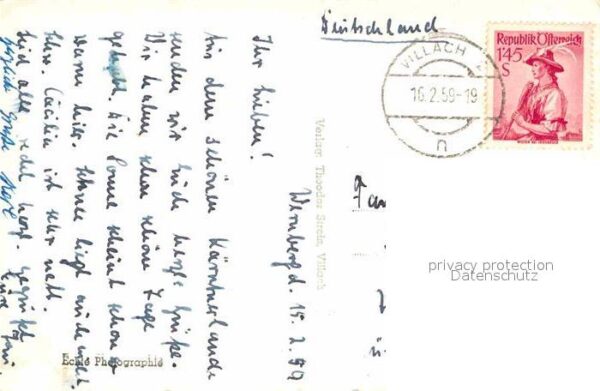 Deutschland
VILLACH 2
16.2.59-19
n
Republik Österreich
1'45
S
Wernberg d. 15.2.59
Ihr Lieben!
Aus dem schönen Kärntnerlande
senden wir Euch herzl. Grüße.
Wir haben schon schöne Tage
gehabt. Die Sonne scheint schon
warm hier. Schnee liegt auch nicht
Schw. Cäcilia ist sehr nett.
Seid alle recht herzl. gegrüßt
Eure
Verlag Theodor Strein, Villach
Echte Photographie
Fam
privacy protection
Datenschutz